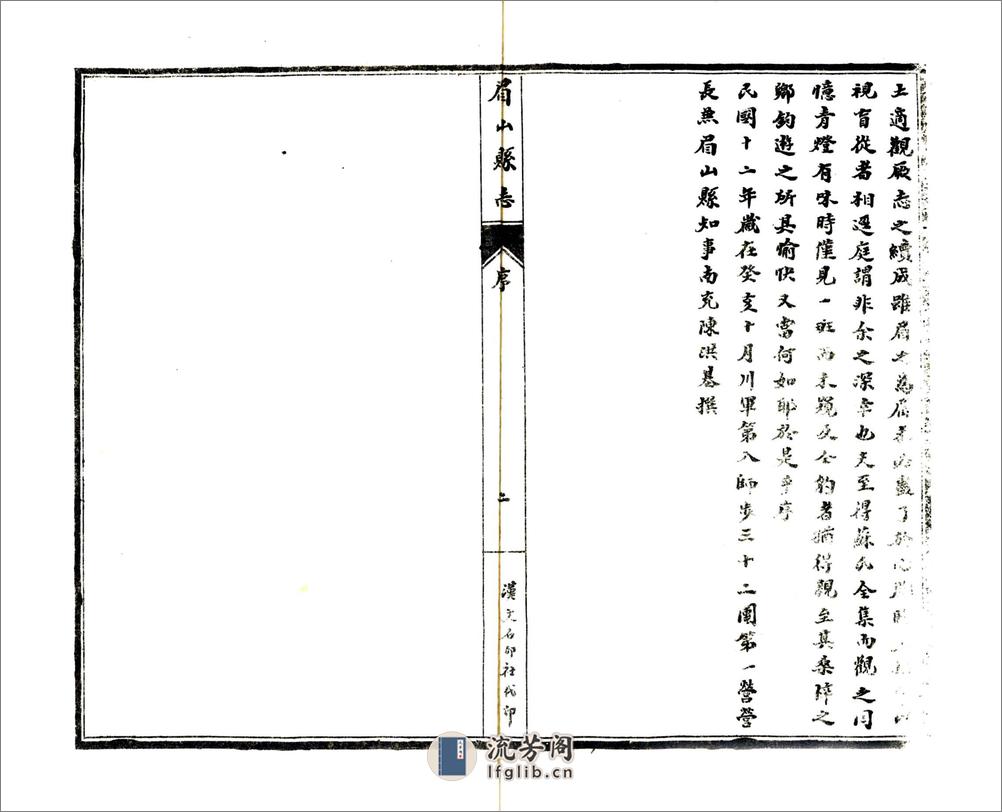 土適觀厥志之續成雖眉之為眉
視盲從者相逕庭謂非余之深幸也夫至得蘇氏全集而觀之同
憶青燈有味時僅見一斑而未窺及全豹者猶得親至其桑梓之
鄉釣遊之所其愉快又當何如耶於是乎序
民國十二年歲在癸亥十月川軍第八師步三十二團第一營營
長兼眉山縣知事南充陳洪基撰
眉山縣志
序
二
漢文石印社代印
流芳阁
lfglib.cn